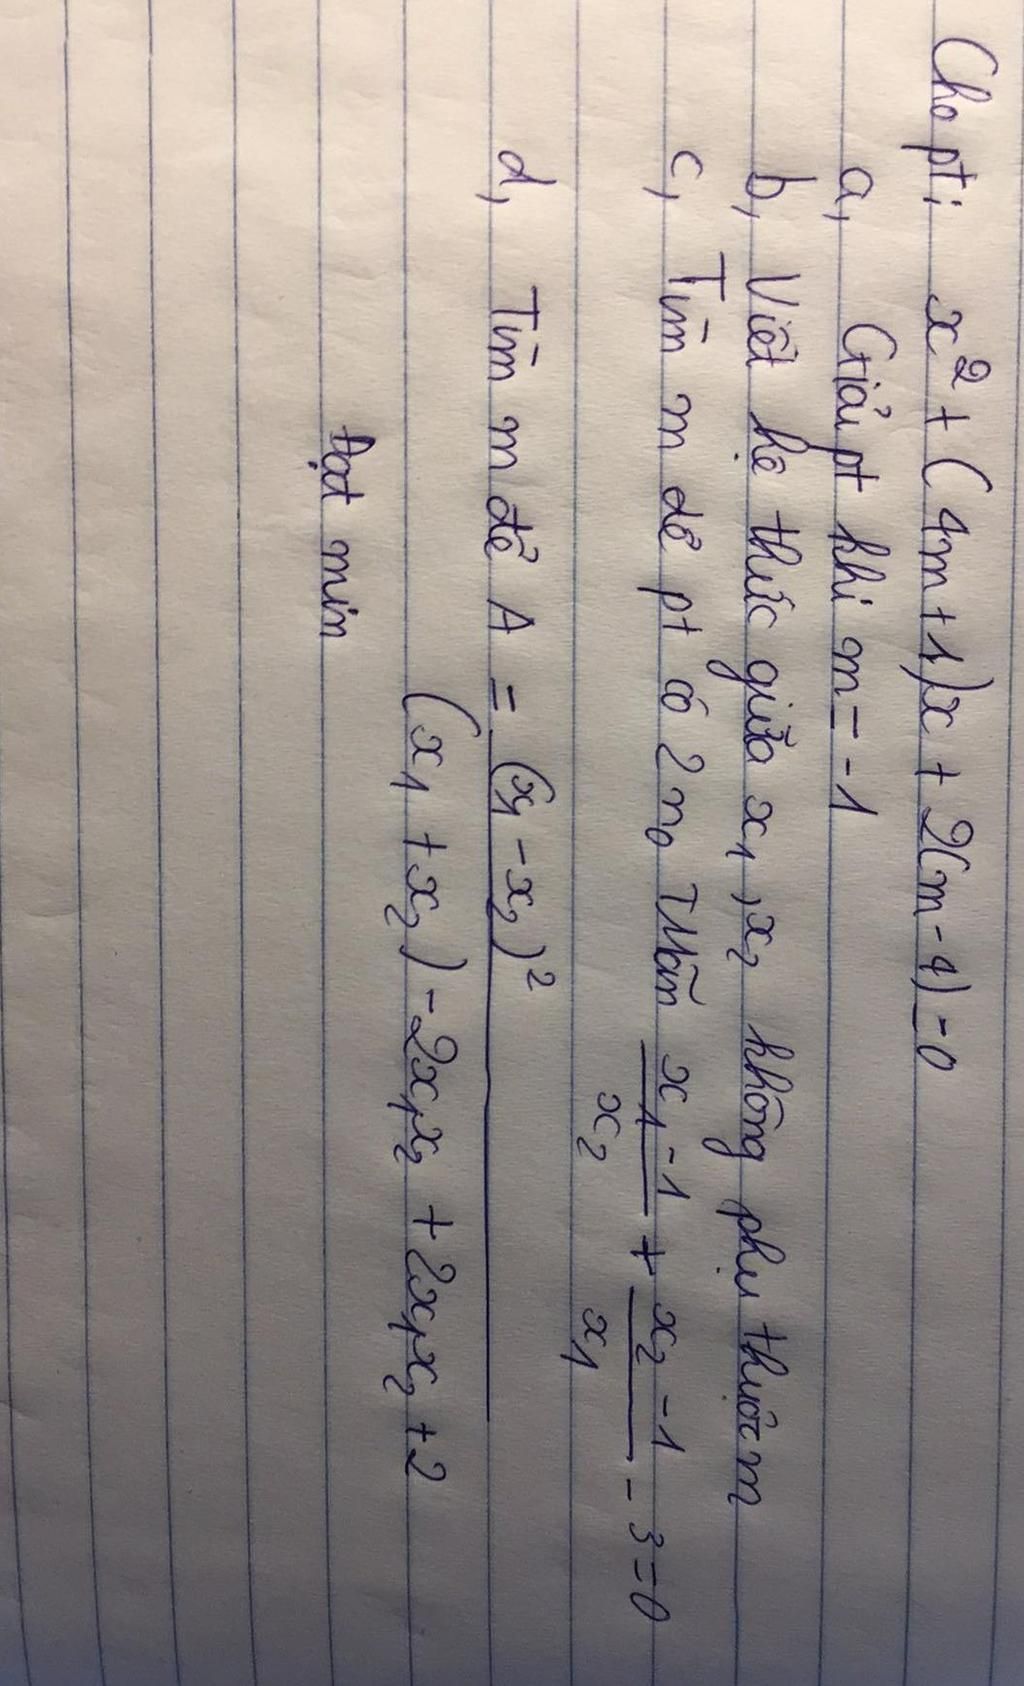 Cho pt: x² + (4m+1)x + 2(m-4)=0
a, Giải pt khi m=-1
b, Viết hệ thức giữa x₁,x₂ không phụ thuộc m
c, Tìm m để pt có 2 n₀ Tmãn (x₁-1)/x₂ + (x₂-1)/x₁ - 3=0
d, Tìm m để A = (x₁-x₂)² / ((x₁+x₂)-2x₁x₂+2x₁x₂+2)
Đạt min